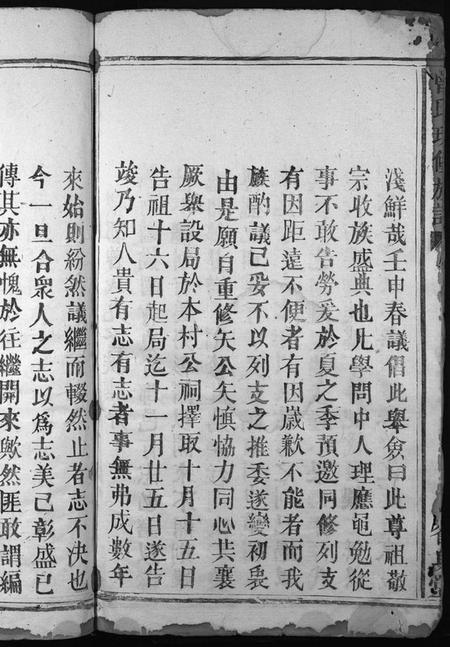 淺鮮哉壬申春議倡此舉僉曰此尊祖敬
宗收族盛典也凡學問中人理應黽勉從
事不敢告勞爰於夏之季預邀同修列支
有因距遠不便者有因歲歉不能者而我
族酌議已妥不以列支之推委遂變初衷
由是願自重修矢公矢慎恊力同心共襄
厥舉設局於本村公祠擇取十月十五日
告祖十六日起局迄十一月廿五日遂告
竣乃知人貴有志有志者事無弗成數年
來始則紛然議繼而輟然止者志不决也
今一旦合衆人之志以為志美已彰盛已
傳其亦無愧於往繼開來歟然匪敢謂編